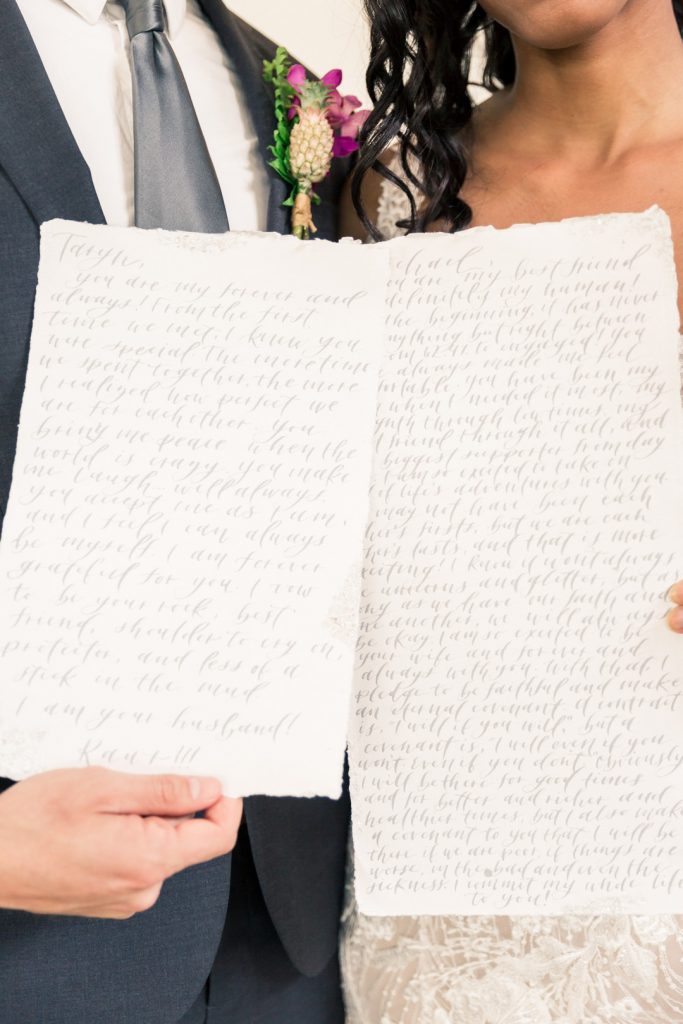 Taryn,
you are my forever and
always! From the first
time we met, I knew you
were special. The more time
we spent together, the more
I realized how perfect we
are for each other. You
bring me peace when the
world is crazy, you make
me laugh, will always,
you accept me as I am,
and I feel I can always
be myself. I am forever
grateful for you. I vow
to be your rock, best
friend, shoulder to cry on,
protector, and less of a
stick in the mud
I am your husband!
chael,
ou are my best friend
definitely my human!
the beginning, it has never
anything but right between
to engaged! You
always made me feel
fortable. You have been my
when I needed it most, my
gth through low times, my
friend through it all, and
biggest supporter from day
I am so excited to take on
of life's adventures with you
may not have been each
her's firsts, but we are each
her's lasts, and that is more
citing! I know it won't always
unicorns and glitter, but as
ng as we have our faith and
ne another, we will always
be okay. I am so excited to be
your wife and forever and
always with you. With that, I
pledge to be faithful and make
an eternal covenant. A contract
is, "I will if you will," but a
covenant is, "I will even if you
don't. Even if you don't." Obviously
I will be there for good times
and for better and richer and
healthier times, but I also make
a covenant to you that I will be
there if we are poor, if things are
worse, in the bad and even the
sickness. I commit my whole life
to you!